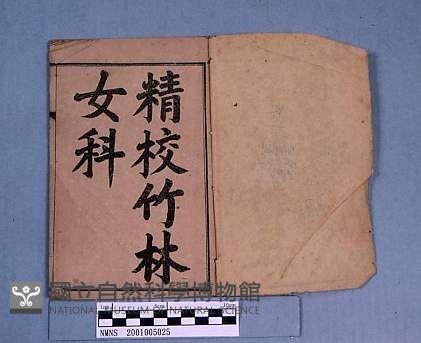 精校竹林
女科
國立自然科學博物館
NATIONAL MUSEUM OF NATURAL SCIENCE
1cm 5cm 10cm
NMNS 2001005025